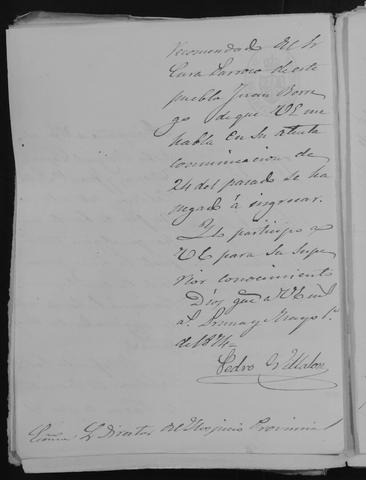 recomendado del Sr
Cura Parroco de este
pueblo Juan Borre
go de que VE me
habla en su atenta
comunicacion de
24 del pasado se ha
negado á ingresar.
Y lo participo á
VE para su supe
rior conocimiento
Dios gue a VE m.
a.s y Mayo 1º
de 1874
Pedro Villalon
Director del Hospicio Provincial